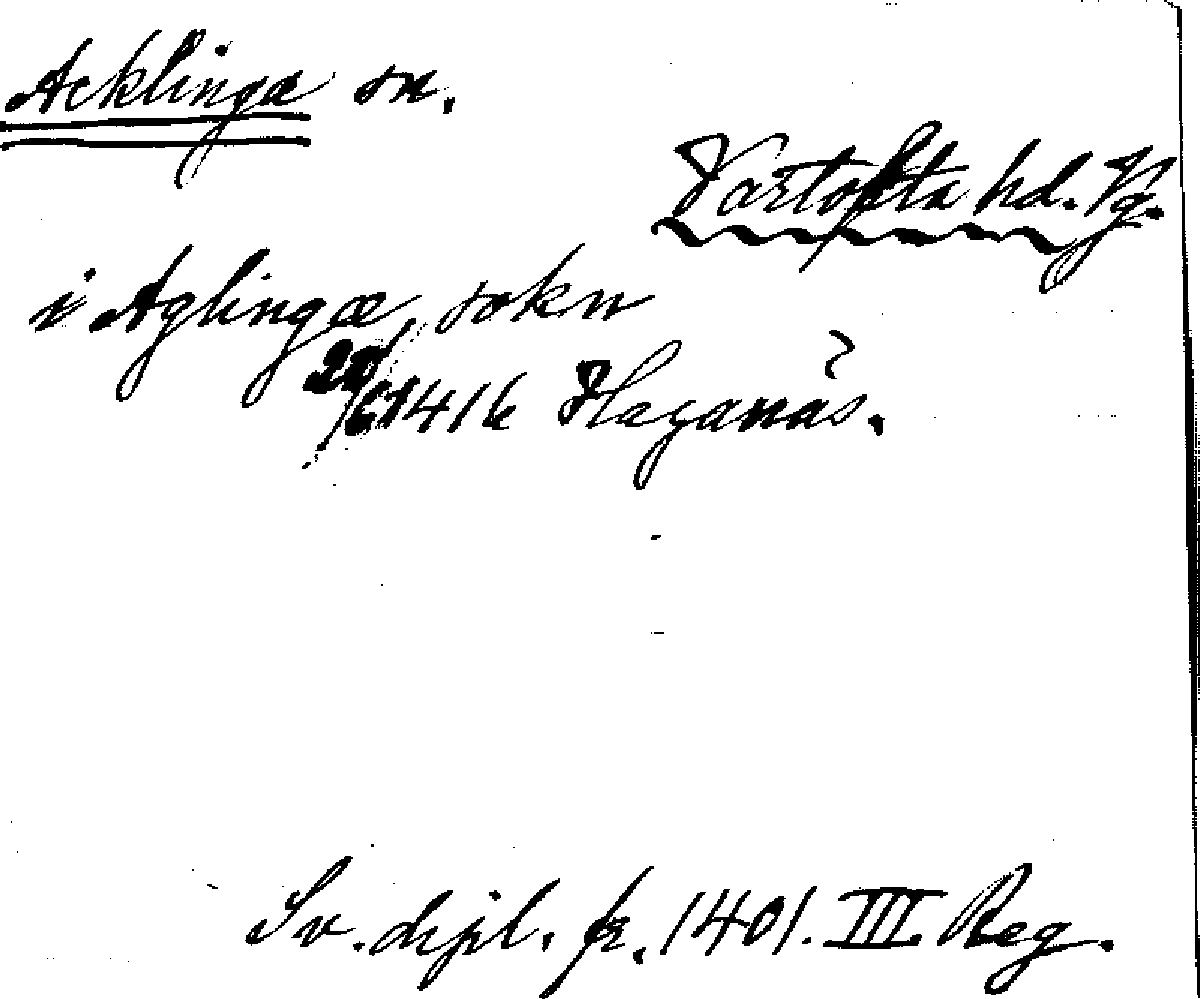 Acklinga sn.
Vartofta hd. Vg.
i Aglingæ, sokn
1416 Haganäs.
Sv. dipl. fr. 1401. III. Reg.